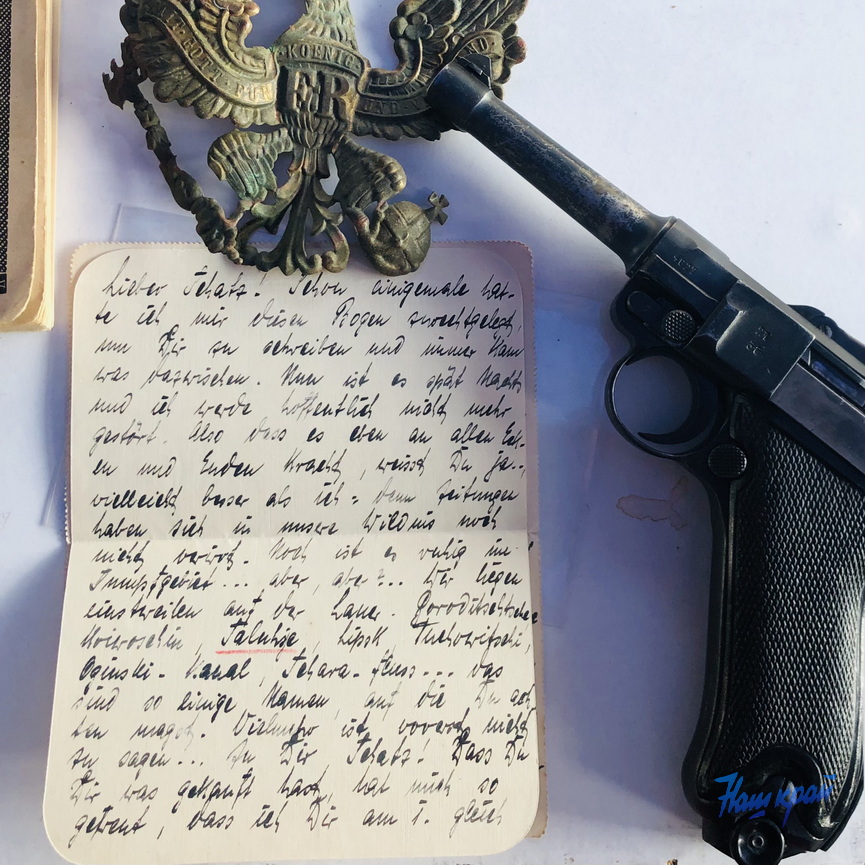 MIT GOTT FÜR
KOENIG
UND V
ND.
FR
Lieber Schatz! Schon einigemale hat-
te ich mir diesen Bogen zurechtgelegt,
um Dir zu schreiben und immer kam
was dazwischen. Nun ist es spät Nachts
und ich werde hoffentlich nicht mehr
gestört. Also dass es eben an allen Eck-
en und Enden kracht, weisst Du ja..,
vielleicht besser als ich - denn Zeitungen
haben sich in unsere Wildnis noch
nicht verirrt. Noch ist es ruhig im
Sumpfgebiet... aber, aber?... Wir liegen
einstweilen auf der Lauer. Goroditschtsche
Nowosselin, Teluhge, Lipsk,
Oginski-Kanal, Schara-Fluss... das
sind so einige Namen, auf die Du ach-
ten magst. Vielmehr ist vorerst nicht
zu sagen... zu Dir, Schatz! Dass Du
Dir was gekauft hast, hat mich so
gefreut, dass ich Dir am 1. gleich
Наш край